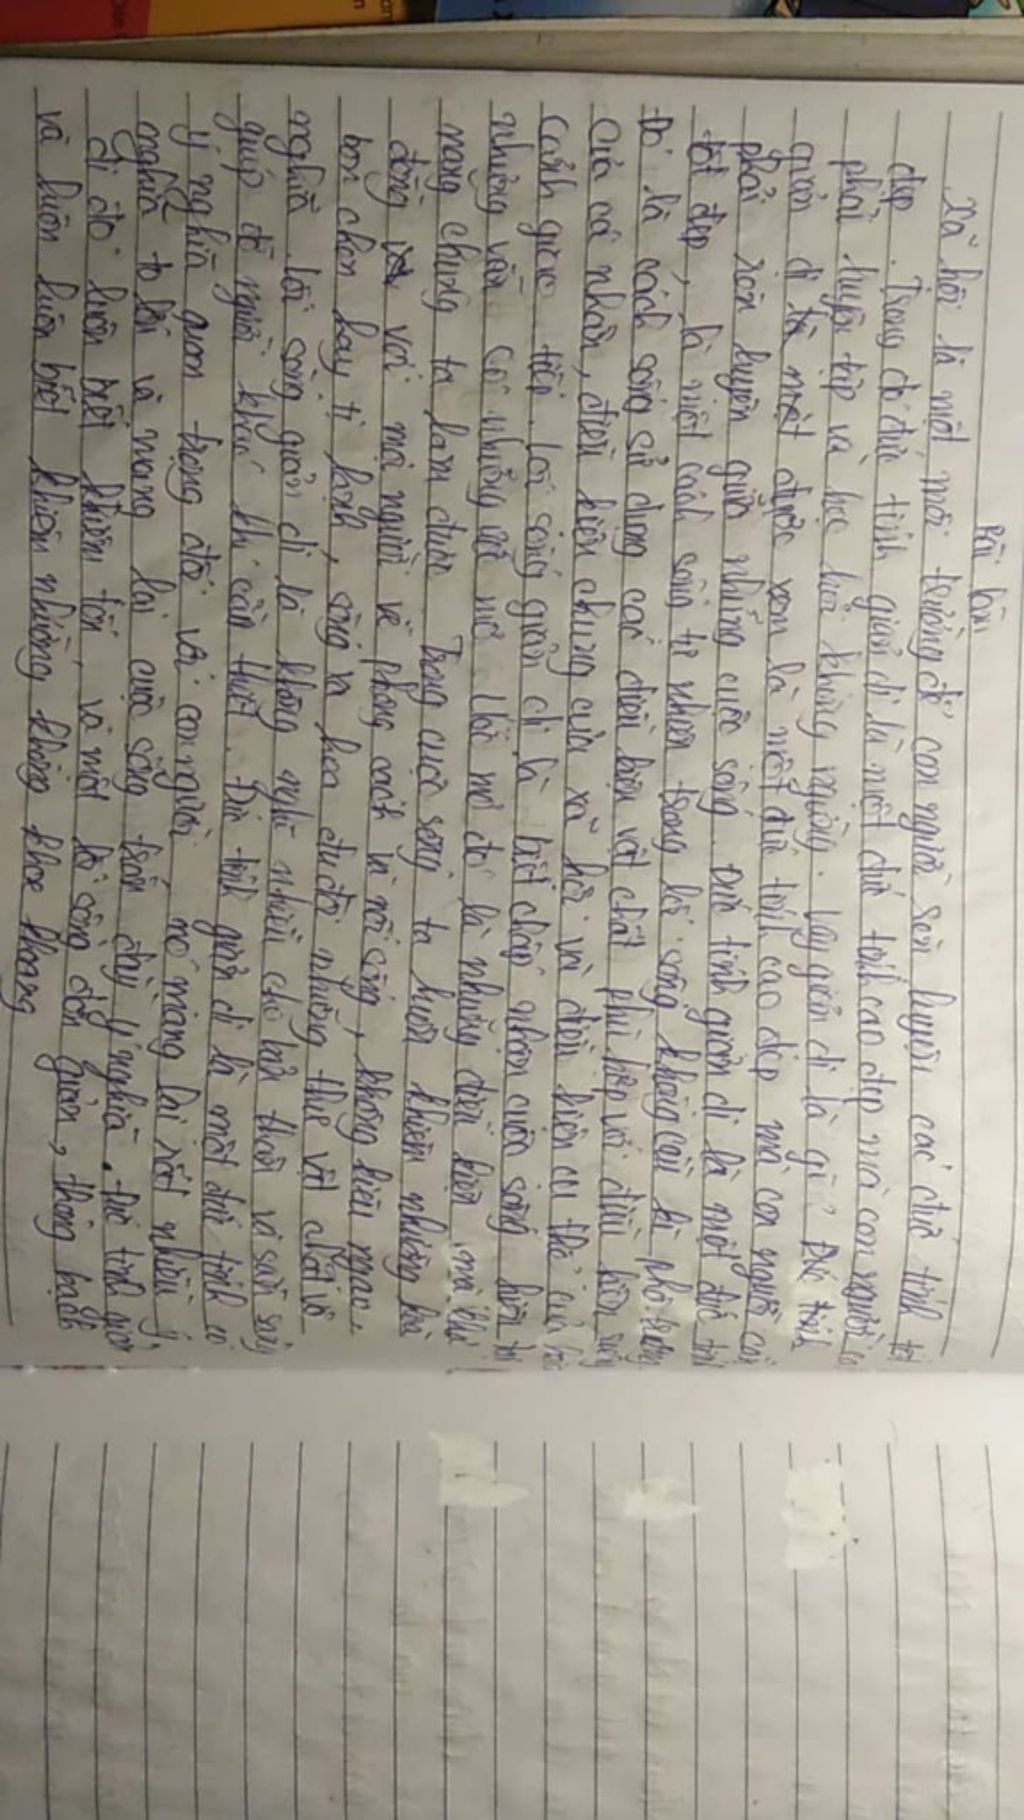 Bài làm
Xã hội là một môi trường để con người rèn luyện các đức tính tốt
đẹp. Trong đó đức tính giản dị là một đức tính cao đẹp mà con người
phải luyện tập và học hỏi không ngừng. Vậy giản dị là gì? Đức tính
giản dị là một được xem là nột đức tính cao đẹp mà con người cần
phải rèn luyện giữa những cuộc sống. Đức tính giản dị là một đức tính
tốt đẹp, là một cách sống tự nhiên trong lối sống không cầu kì phô trương
Đó là cách sống sử dụng các điều kiện vật chất phù hợp với điều kiện
của cá nhân, điều kiện chung của xã hội và điều kiện cụ thể của
cảnh giao tiếp. Lối sống giản dị là biết chấp nhận cuộc sống hiện tại
nhưng vẫn có những ước mơ. Ước mơ đó là những điều kiện mà khả
năng chúng ta làm được. Trong cuộc sống ta luôn khiêm nhường hòa
đồng với mọi người về phong cách và lối sống, không kiêu ngạo,
bon chen hay tị hạnh, sống xa hoa đua đòi những thứ vật chất vô
nghĩa. Lối sống giản dị là không nghĩ nhiều cho bản thân và sẵn sàng
giúp đỡ người khác khi cần thiết. Đức tính giản dị là một đức tính có
ý nghĩa quan trọng đối với con người, nó mang lại rất nhiều ý
nghĩa to lớn và mang lại cuộc sống tràn đầy ý nghĩa. Đức tính giản
dị đó luôn biết khiêm tốn, và một lối sống đơn giản, thông bạch
và luôn luôn biết khiêm nhường không khoe khoang